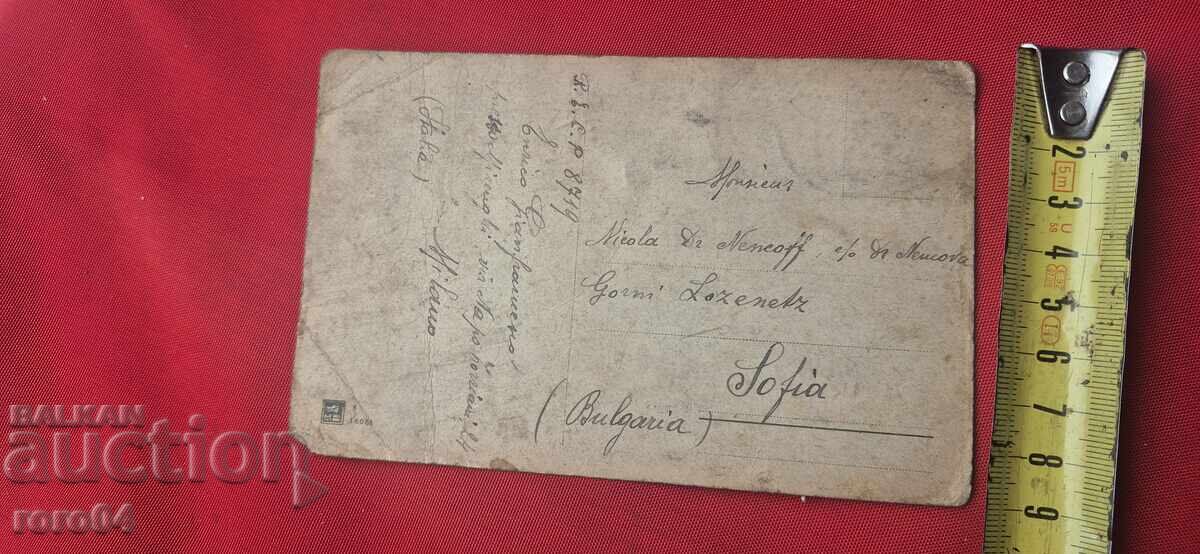 R. E. C. P 8719
Enrico
via
Milano
(Italia)
Monsieur
Nicola Dr Nencoff, c/o Dr Nencova
Gorni Lozenetz
Sofia
(Bulgaria)
BALKAN
auction
roro64
2
3
4
5
6
7
8
9
5m